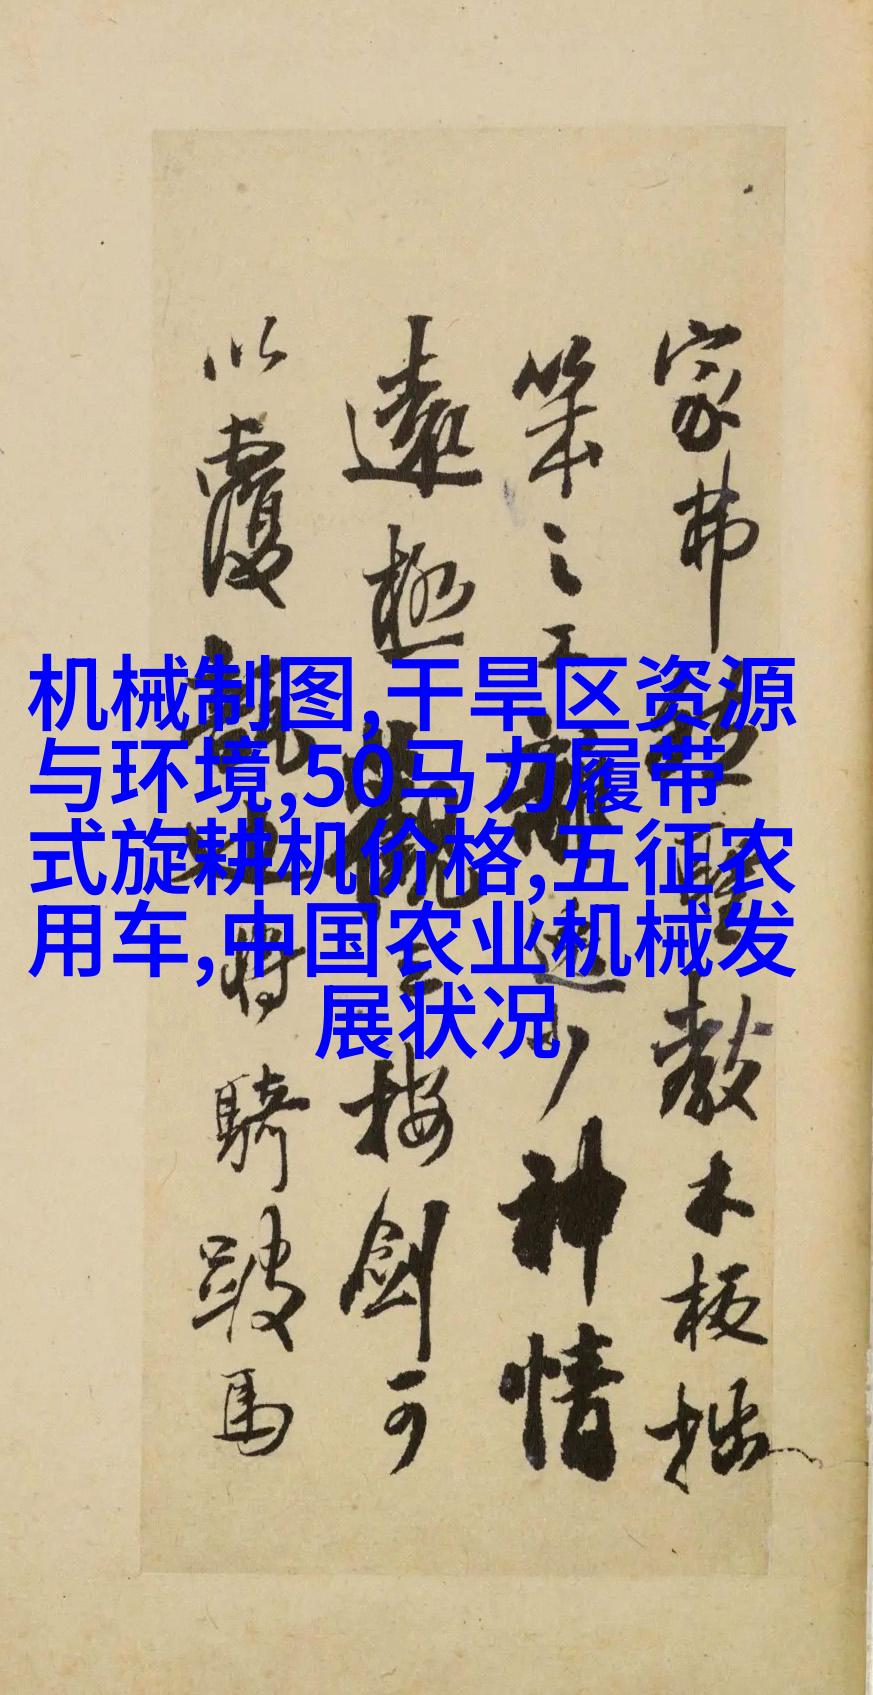 机械制图,干旱区资源
与环境,50马力履带
式旋耕机价格,五征农
用车,中国农业机械发
展状况
家弟 教木板拙
筆之工 神情
遠極 觀 按劍可
以覆瓿 将騎跛馬